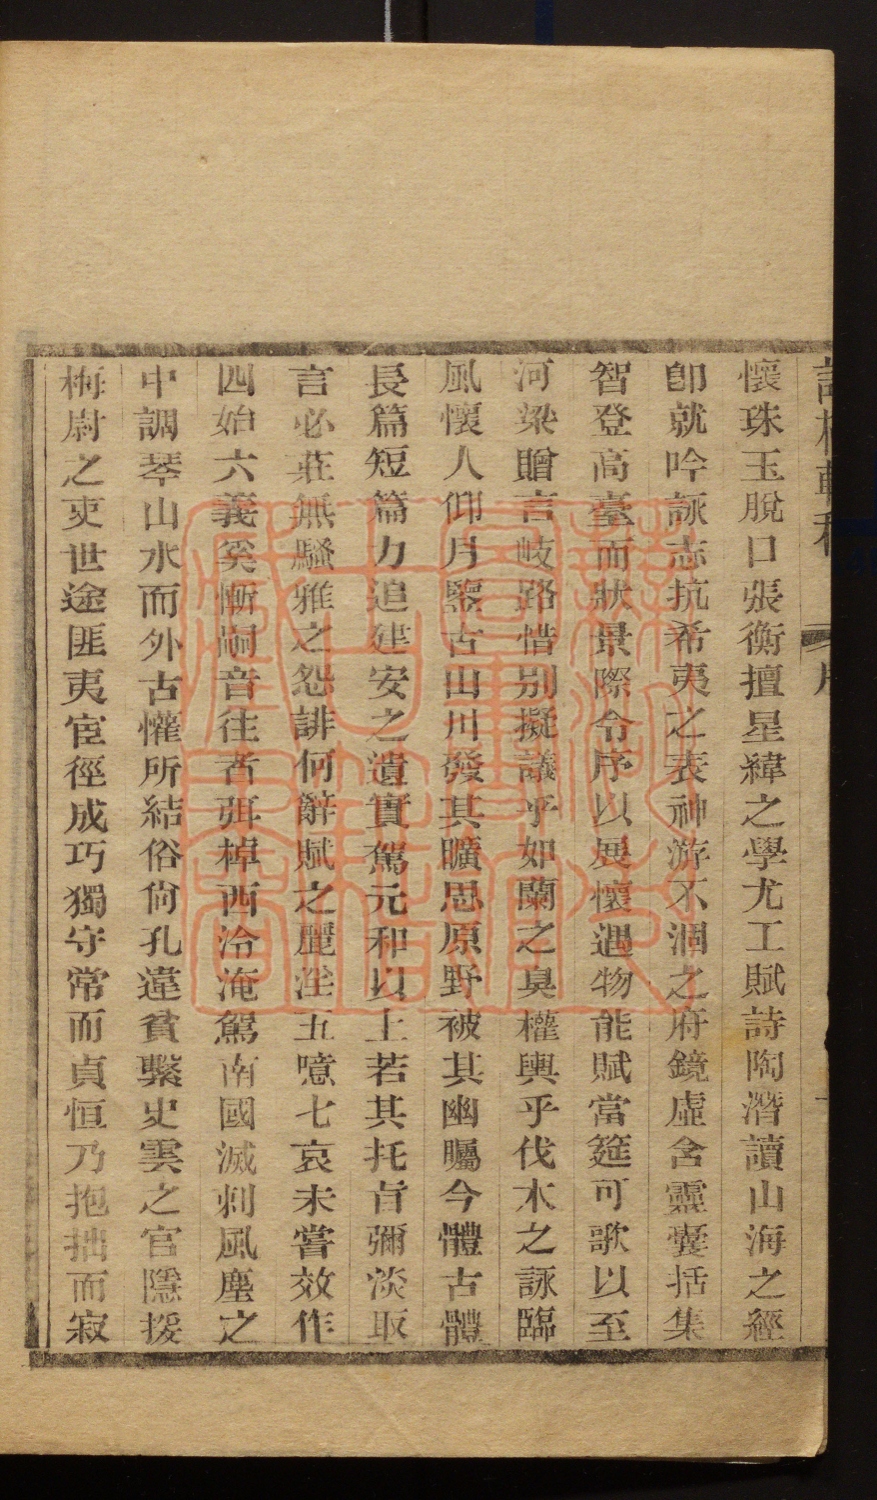 懷珠玉脫口張衡擅星緯之學尤工賦詩陶潛讀山海之經
卽就吟詠志抗希夷之表神游不涸之府鏡虛含靈囊括集
智登高臺而狀景際令序以展懷遇物能賦當筵可歌以至
河梁贈言岐路惜別擬議乎如蘭之臭權輿乎伐木之詠臨
風懷人仰月鑒古山川發其曠思原野被其幽矚今體古體
長篇短篇力追建安之遺實駕元和以上若其托旨彌淡取
言必莊無騷雅之怨誹何辭賦之麗淫五噫七哀未嘗效作
四始六義奚慚嗣音往者弭棹西泠淹駕南國滅刺風塵之
中調琴山水而外古懽所結俗尙孔違貧繫史雲之官隱援
梅尉之吏世途匪夷宦徑成巧獨守常而貞恒乃抱拙而寂